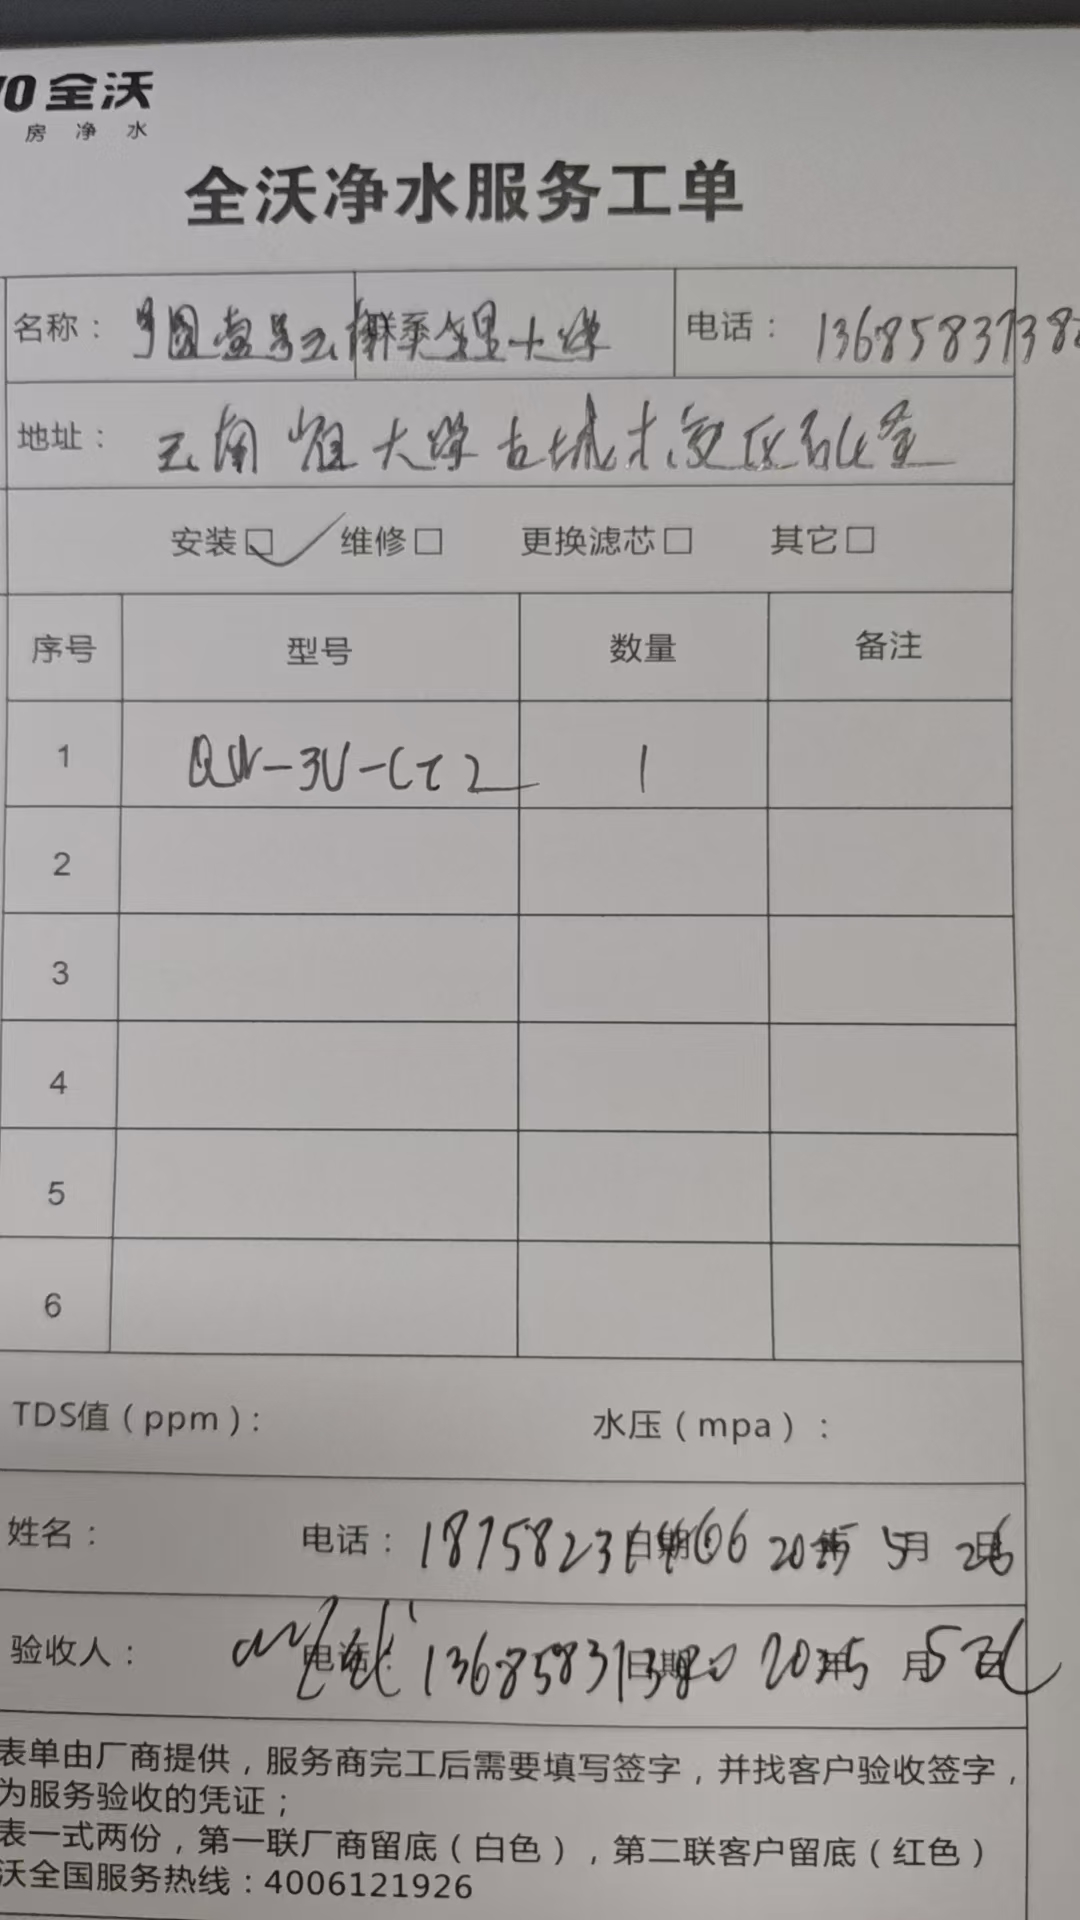 全沃
房净水
全沃净水服务工单
名称： 号 云南 大学 电话： 1368583138
地址： 云南 大学古城 校区
安装☑ 维修□ 更换滤芯□ 其它□
序号 型号 数量 备注
1 QW-3U-CT2 1
2
3
4
5
6
TDS值（ppm）: 水压（mpa）：
姓名： 电话： 日期： 2025年5月26日
验收人： 电话： 13685831380 日期： 2025年5月
表单由厂商提供，服务商完工后需要填写签字，并找客户验收签字，
为服务验收的凭证；
表一式两份，第一联厂商留底（白色），第二联客户留底（红色）
沃全国服务热线：4006121926